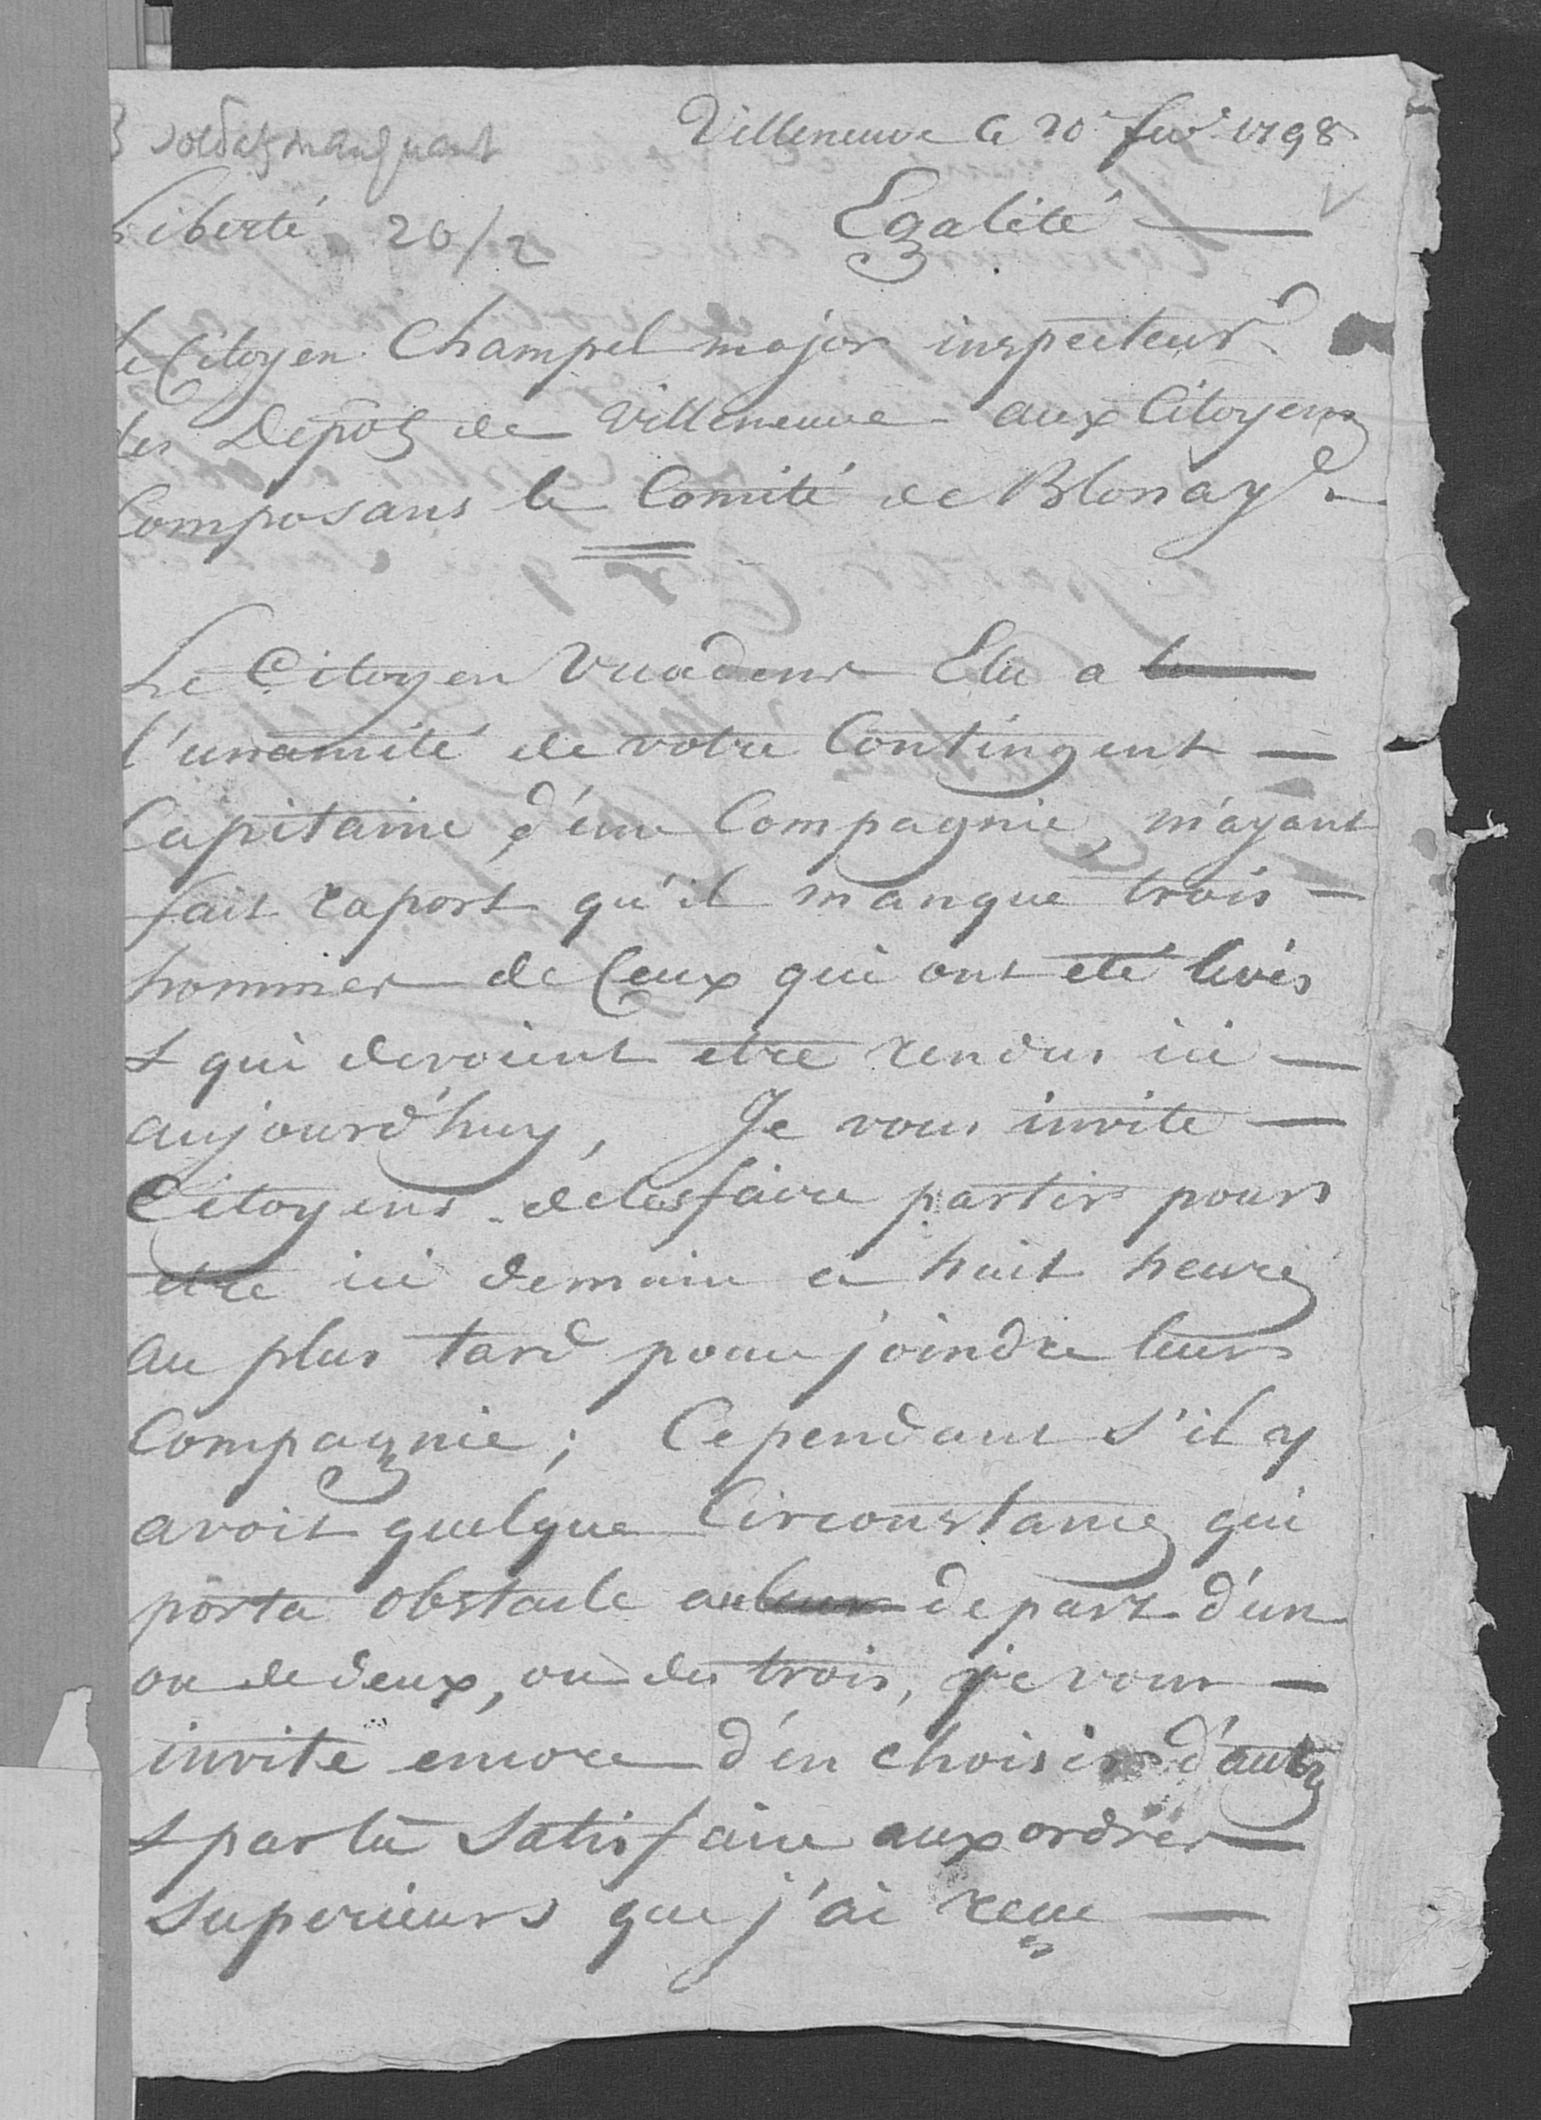 3 soldats manquant
Villeneuve le 20e fevr 1798
Liberté 20/2 Egalité
le Citoyen Champel major inspecteur
des Depots de Villeneuve aux Citoyens
Composans le Comité de Blonay
Le Citoyen Vuadens Elu a
l'unamité de votre Contingent
Capitaine d'une Compagnie, m'ayant
fait raport qu'il manque trois
hommes de Ceux qui ont eté levés
& qui devoient etre rendus ici
aujourd'huy, Je vous invite
Citoyens de les faire partir pour
etre ici demain a huit heures
au plus tard pour joindre leur
Compagnie; Cependant s'il y
avoit quelque Circonstance qui
porta obstacle au depart d'un
ou de deux, ou des trois, je vous
invite encore d'en choisir d'autres
& par là Satisfaire aux ordres
Superieurs que j'ai reçue